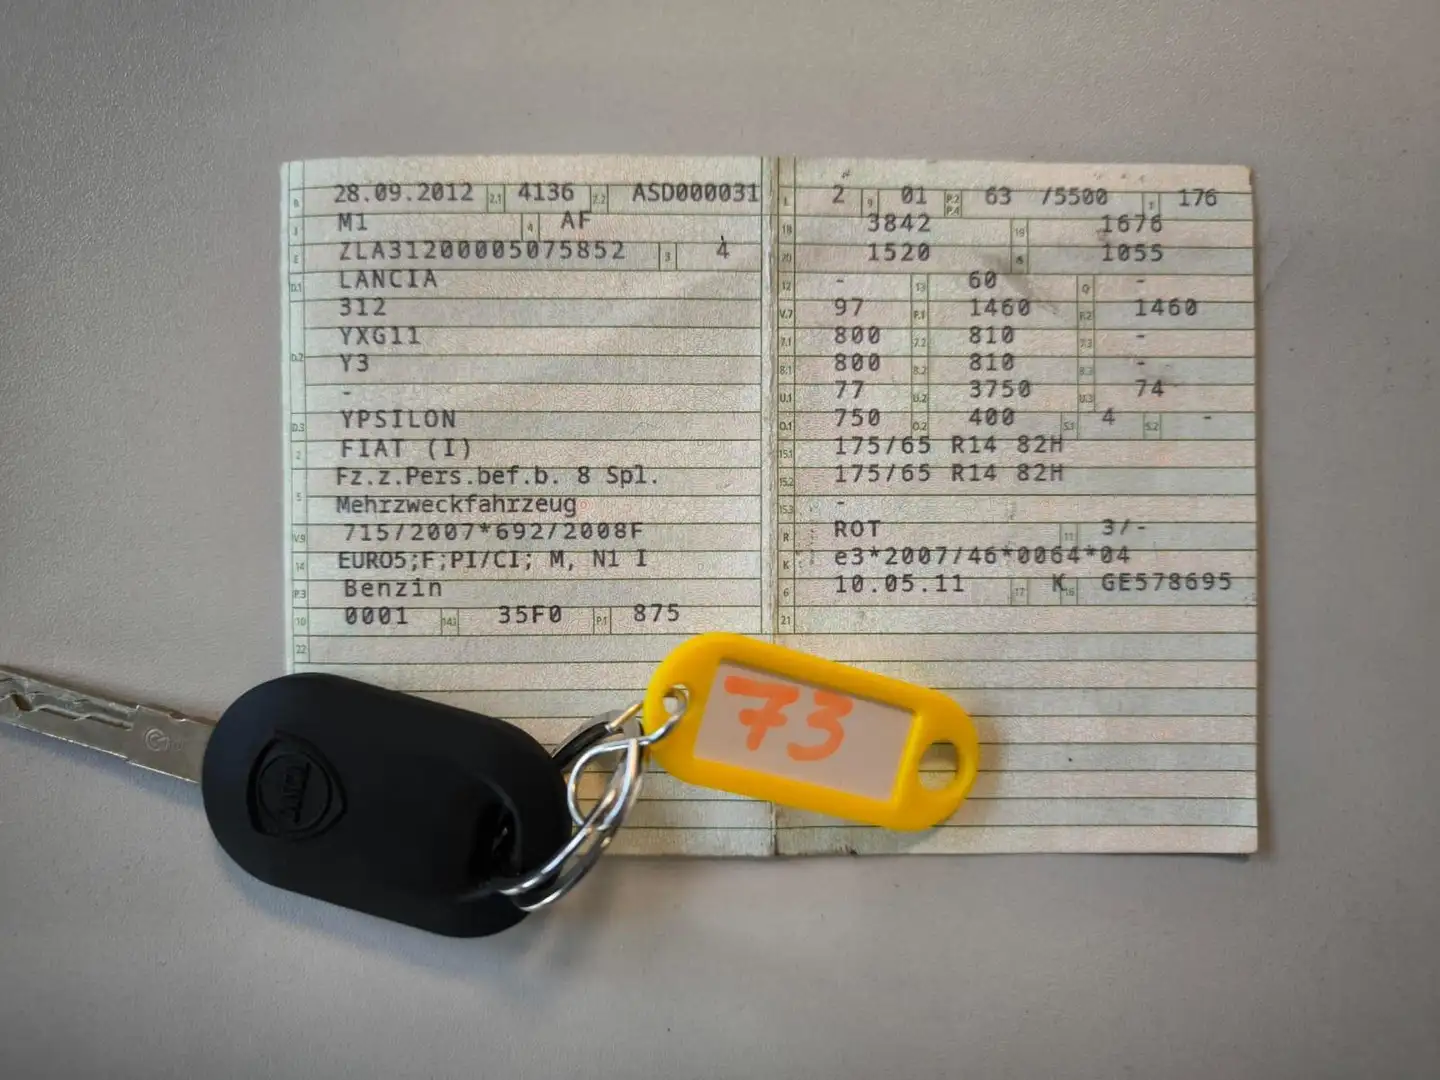 B 28.09.2012 2.1 4136 2.2 ASD000031
J M1 4 AF
E ZLA31200005075852 3 4
D.1 LANCIA
312
YXG11
D.2 Y3
-
D.3 YPSILON
2 FIAT (I)
Fz.z.Pers.bef.b. 8 Spl.
5 Mehrzweckfahrzeug
V.9 715/2007*692/2008F
14 EURO5;F;PI/CI; M, N1 I
P.3 Benzin
10 0001 14.1 35F0 P.1 875
22
L 2 9 01 P.2 P.4 63 /5500 T 176
18 3842 19 1676
20 1520 G 1055
12 - 13 60 Q -
V.7 97 F.1 1460 F.2 1460
7.1 800 7.2 810 7.3 -
8.1 800 8.2 810 8.3 -
U.1 77 U.2 3750 U.3 74
O.1 750 O.2 400 S.1 4 S.2 -
15.1 175/65 R14 82H
15.2 175/65 R14 82H
15.3 -
R ROT 11 3/-
K e3*2007/46*0064*04
6 10.05.11 17 K 16 GE578695
21
73